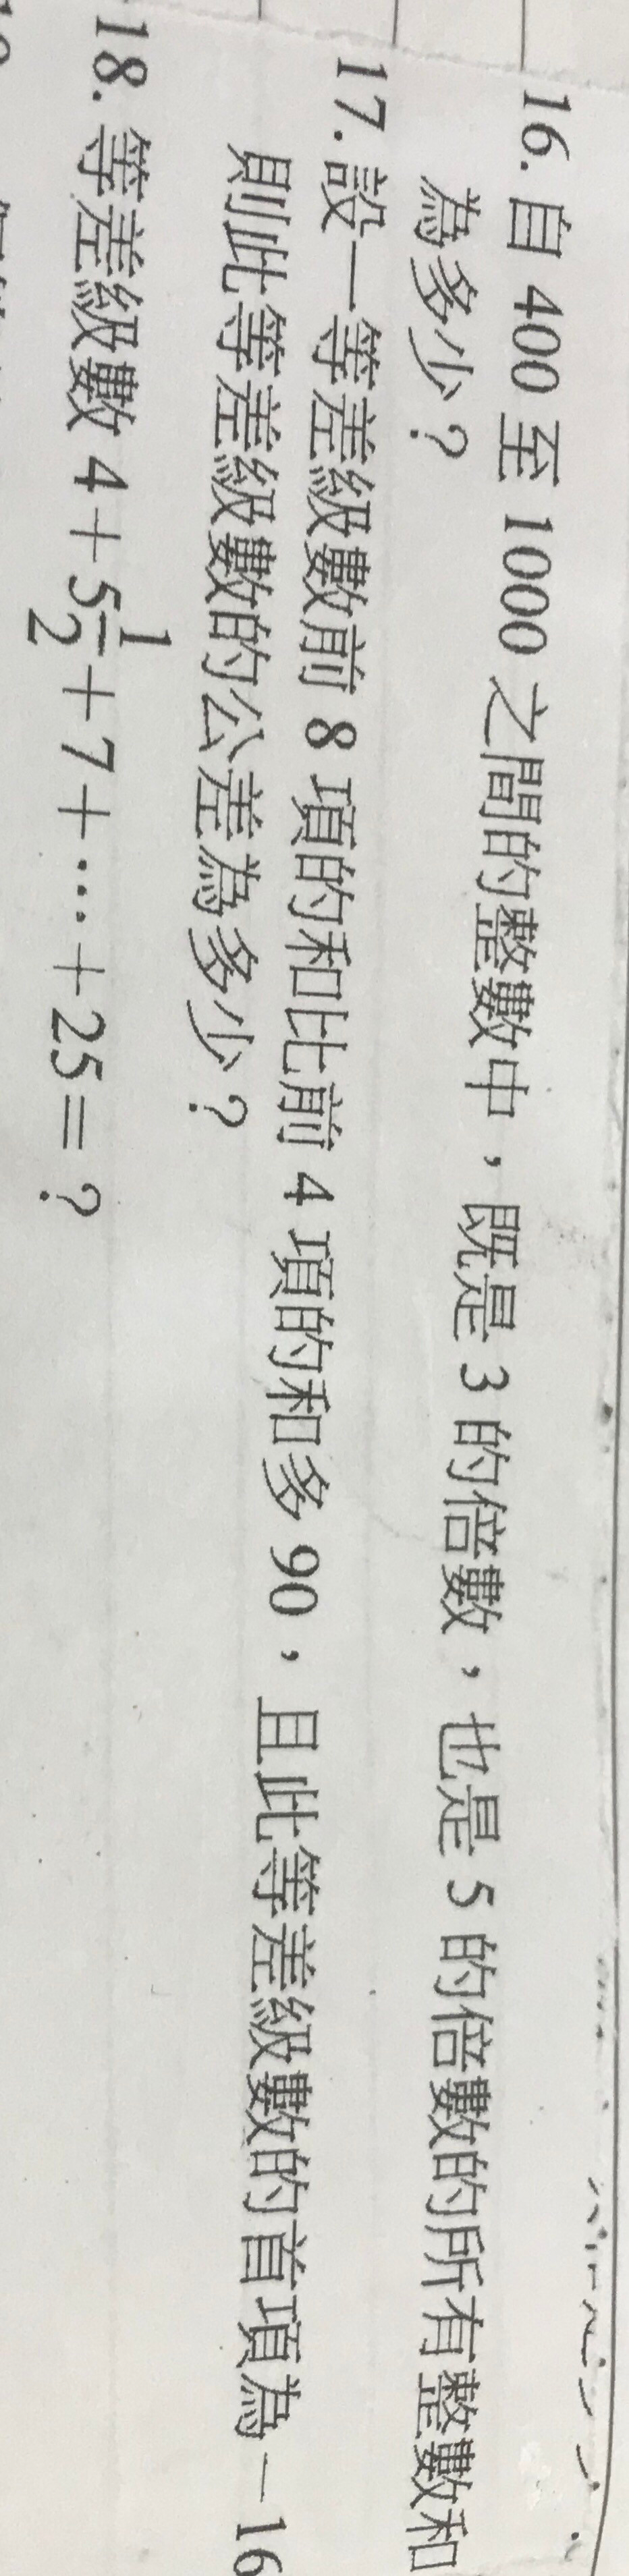 16. 自 400 至 1000 之間的整數中，既是 3 的倍數，也是 5 的倍數的所有整數和
為多少？
17. 設一等差級數前 8 項的和比前 4 項的和多 90，且此等差級數的首項為－16
則此等差級數的公差為多少？
18. 等差級數 4＋5\frac{1}{2}＋7＋…＋25＝？